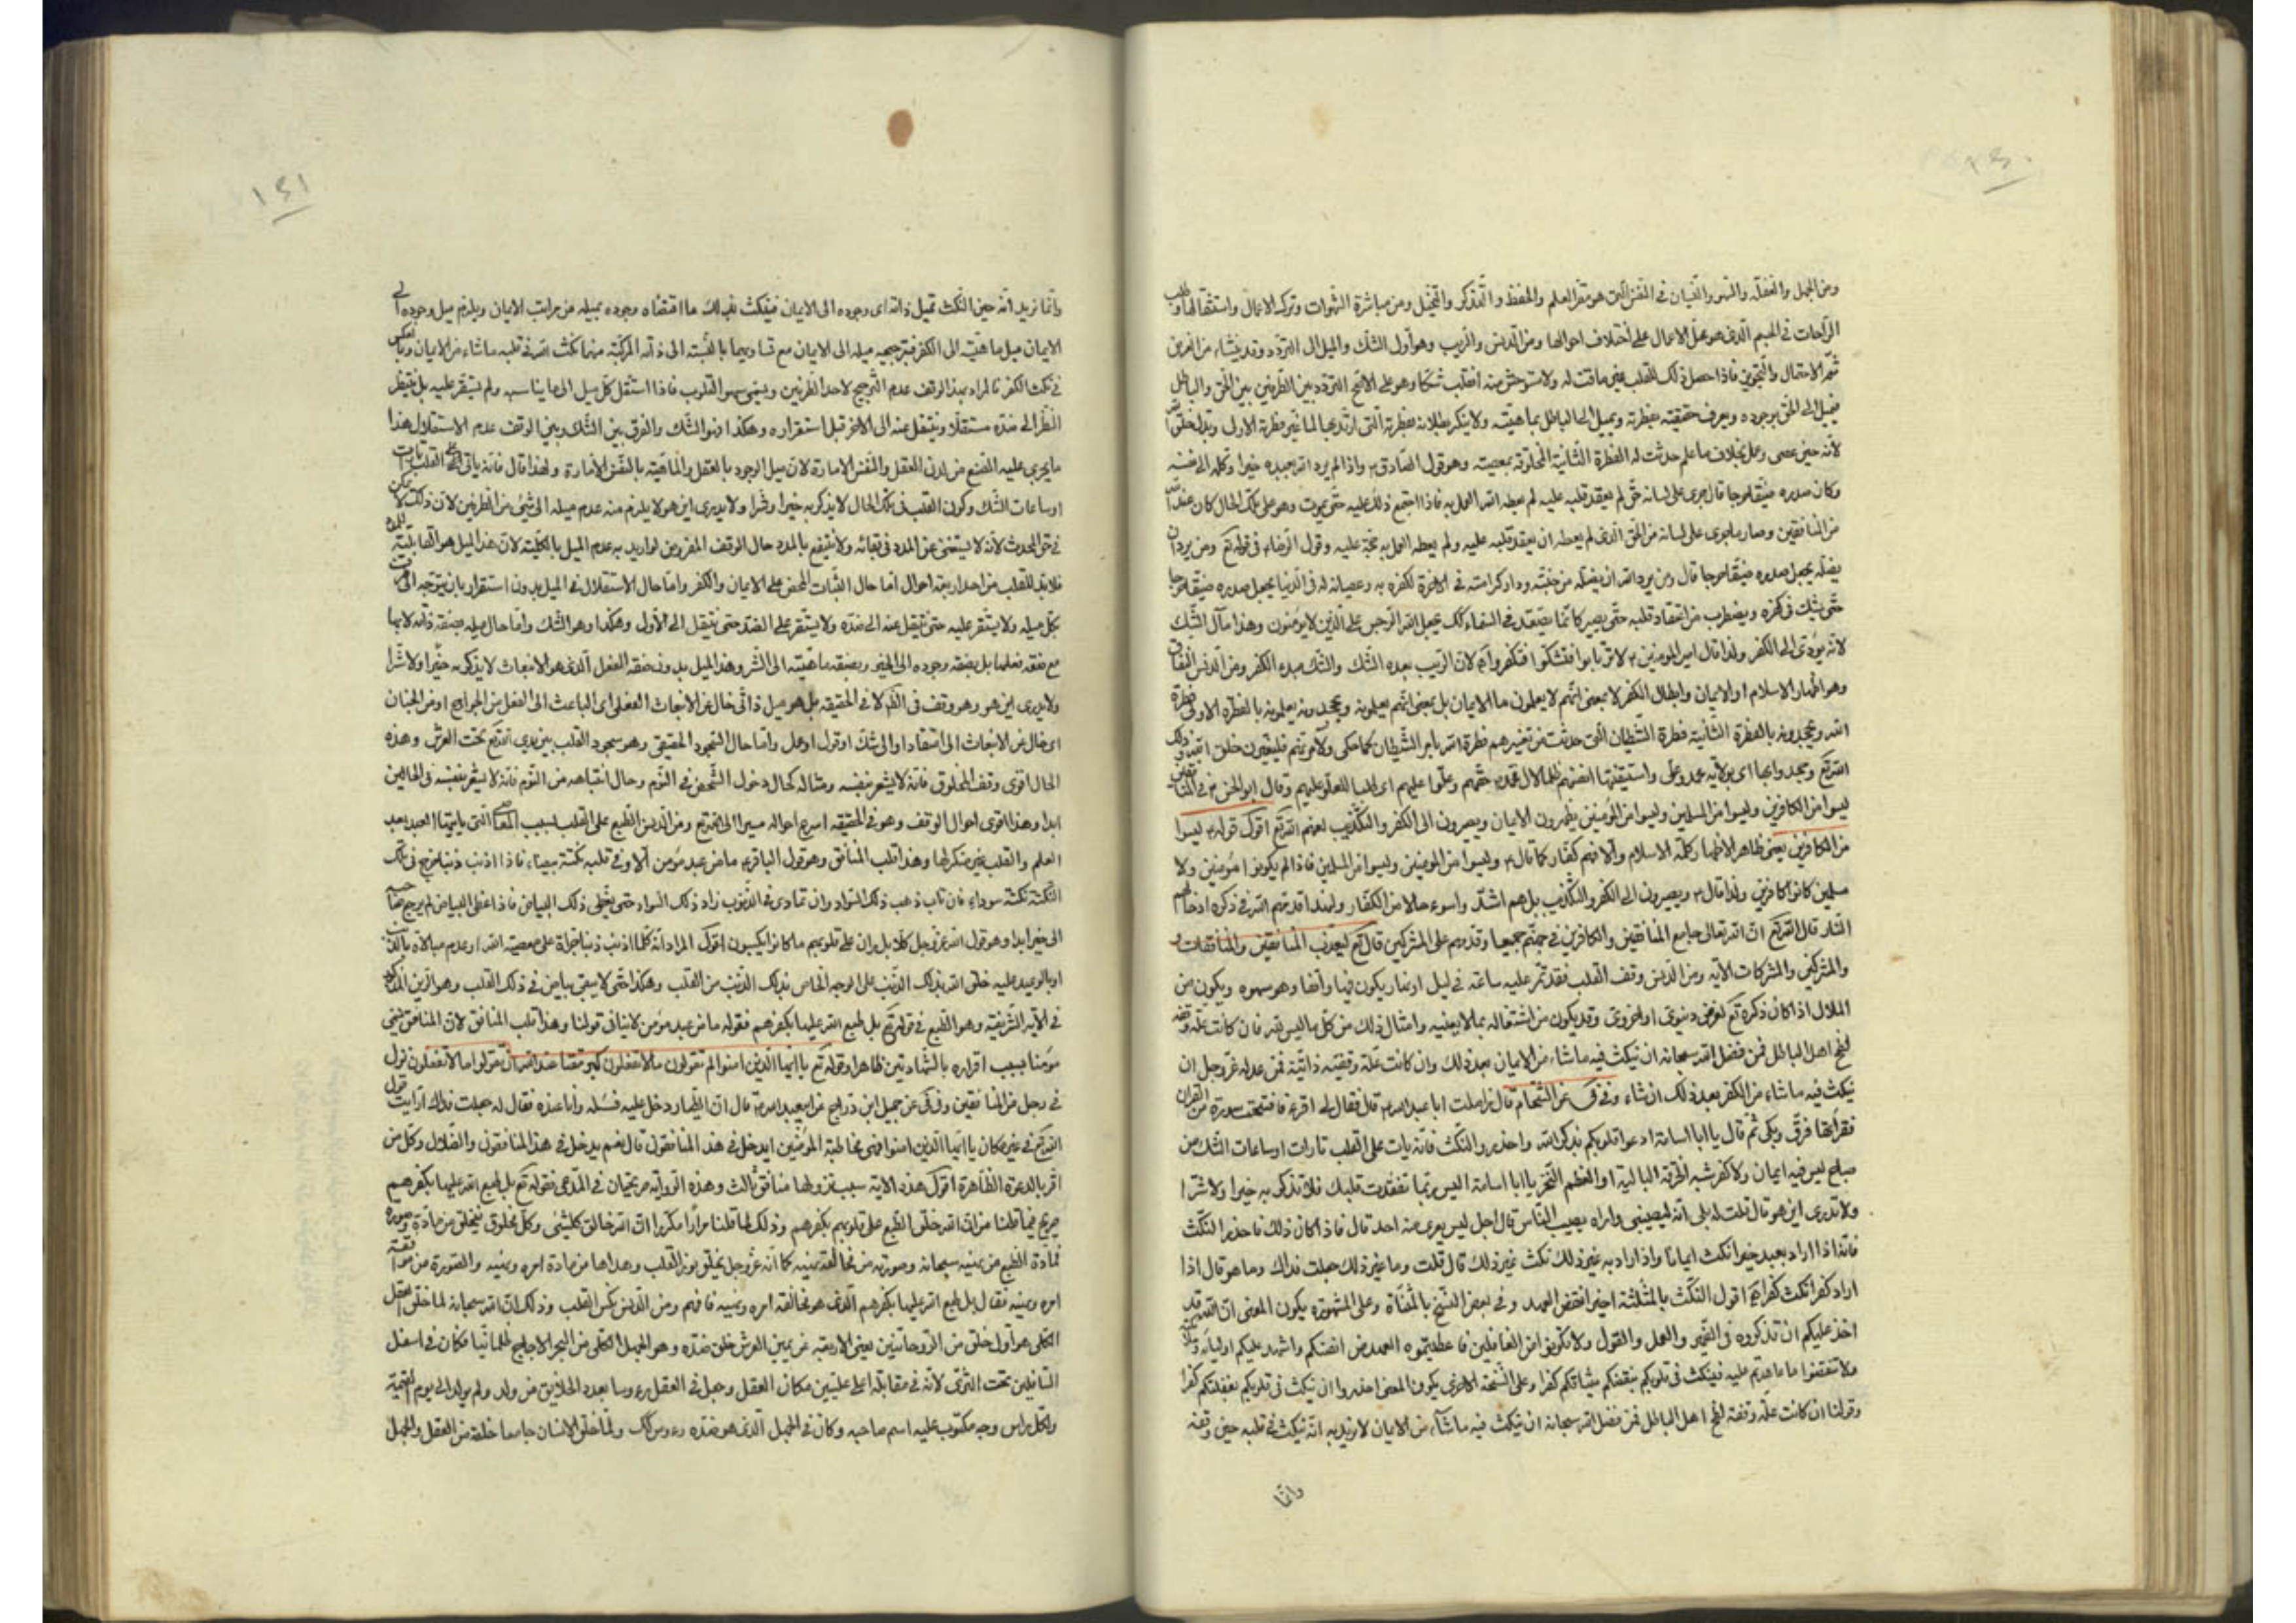 ومن الجهل والغفلة والسهو والنسيان في النفس التي هو مقر العلم والحفظ والتذكر والتخيل ومن مباشرة الشهوات وترك الاعمال واستثقالها وطلب
الراحات في الجسم الذي هو محل الاعمال على اختلاف احوالها ومن الدنس والريب وهو اول الشك والميل الى التردد وقد ينشاء من
ثمة الاحتمال والتجويز فاذا حصل ذلك للقلب ولا ستوحش منه انقلب شكا وهو على الاصح التردد بين الطرفين بين الحق والباطل
فيميل الى الحق بوجوده ويعرف حقيقته بفطرته ويميل الى الباطل بماهيته ولا ينكر بطلانه بفطرته التي فطرته الاولى
لانه حين عصى وعمل بخلاف ما علم حدثت له الفطرة الثانية المخلوقة بمعصيته وهو قول الصادق ع واذا لم يرد الله بعبده خيرا وكله الى نفسه
وكان صدره ضيقا حرجا فان جرى على لسانه حق لم يعقد قلبه عليه لم يعطه الله العمل به فاذا اجتمع ذلك عليه حتى يموت وهو على تلك الحال كان عند الله
من المنافقين وصار ما جرى على لسانه من الحق الذي لم يعطه ان يعقد قلبه عليه ولم يعطه العمل به حجة عليه وقول الرضا ع في قوله تع ومن يرد ان
يضله يجعل صدره ضيقا حرجا قال ومن يرد الله ان يضله عن جنته ودار كرامته في الاخرة لكفره به وعصيانه له في الدنيا يجعل صدره ضيقا حرجا
حتى يشك في كفره ويضطرب من اعتقاد قلبه حتى يصير كانما يصعد في السماء كك يجعل الله الرجس على الذين لا يؤمنون وهذا مآل الشك
لانه يؤدي الى الكفر ولذا قال امير المؤمنين ع لا ترتابوا فتشكوا فتكفروا لان الريب بعده الشك والشك مبدء الكفر ومن الدنس النفاق
وهو اظهار الاسلام او الايمان وابطان الكفر لا بمعنى انهم لا يعلمون ما الايمان بل بمعنى انهم يعلمونه ويجحدونه يعلمونه بالفطرة الاولى فطرة
الله ويجحدونه بالفطرة الثانية فطرة الشيطان التي حدثت من تغييرهم فطرة الله بامر الشيطان كما حكى ولآمرنهم فليغيرن خلق الله وذلك
الله تع وجحدوا بها اى بولاية محمد وعلي واستيقنتها انفسهم ظلما لال محمد حقهم وعلوا عليهم اى طلبا للعلو عليهم وقال ابو الحسن ع في المنافقين
ليسوا من الكافرين وليسوا من المسلمين وليسوا من المؤمنين يظهرون الايمان ويصيرون الى الكفر والتكذيب لعنهم الله تع اقول قوله ع ليسوا
من الكافرين يعني ظاهرا لاظهار كلمة الاسلام والا فهم كفار كما قال ع وليسوا من المؤمنين وليسوا من المسلمين فاذا لم يكونوا مؤمنين ولا
مسلمين كانوا كافرين ولذا قال ع ويصيرون الى الكفر والتكذيب بل هم اشد واسوء حالا من الكفار ولهذا قدمهم الله في ذكره ادخالهم
النار قال الله تع ان الله تعالى جامع المنافقين والكافرين في جهنم جميعا وقدمهم على المشركين قال تع ليعذب المنافقين والمنافقات
والمشركين والمشركات الاية ومن الدنس وقف القلب فقد تمر عليه ساعة في ليل او نهار يكون فيها واقفا وهو سهوه ويكون من
الملال اذا كان ذكره تع لغرض دنيوي او اخروي وقد يكون من اشتغاله بما لا يعنيه وامثال ذلك من كل ما ليس لله فان كانت علة وقفه
لطخ اهل الباطل فمن فضل الله سبحانه ان ينكث فيه ما شاء من الايمان بعد ذلك وان كانت علة وقفته ذاتية فمن عدله عز وجل ان
ينكث فيه ما شاء من الكفر بعد ذلك ان شاء وفي عن الشحام قال زاملت ابا عبد الله ع قال فقال لي اقرء فافتتحت سورة من القران
فقرأتها فرق وبكى ثم قال يا ابا اسامة ادعوا قلوبكم بذكر الله واحذروا النكث فانه يأتى على القلب تارات او ساعات الشك من
صباح ليس فيه ايمان ولا كفر شبه الخرقة البالية او العظم النخر يا ابا اسامة اليس ربما تفقدت قلبك فلا تذكر به خيرا ولا شرا
ولا تدرى اين هو قال قلت له بلى انه ليصيبني واراه يصيب الناس قال اجل ليس يعرى منه احد قال فاذا كان ذلك فاحذروا النكث
فانه اذا اراد بعبد خيرا نكث ايمانا واذا اراد به غير ذلك نكث غير ذلك قال قلت وما غير ذلك جعلت فداك وما هو قال اذا
اراد كفرا نكث كفرا اقول النكث بالمثلثة اخيرا نقض العهد وفي بعض النسخ بالمثناة وعلى المشهورة يكون المعنى ان الله قد
اخذ عليكم ان تذكروه في الضمير والعمل والقول ولا تكونوا من الغافلين فاعطيتموه العهد من انفسكم واشهد عليكم اولياءه
ولا تنقضوا ما عاهدتم عليه فينكث في قلوبكم بنقضكم ميثاقكم كفرا وعلى النسخة الاخرى يكون المعنى احذروا ان ينكت في قلوبكم بغفلتكم كفرا
وقولنا ان كانت علة وقفته لطخ اهل الباطل فمن فضل الله سبحانه ان ينكث فيه ما شاء من الايمان لا نريد به انه ينكث في قلبه حين وقفه
وانما
١٤١
وانما نريد انه حين النكث تميل ذاته اى وجوده الى الايمان فينكث بذلك ما اقتضاه وجوده بميله من مراتب الايمان ويلزم ميل وجوده الى
الايمان ميل ماهيته الى الكفر فبترجيح ميله الى الايمان مع تساويهما بالنسبة الى ذاته المركبة منهما نكث الله في قلبه ما شاء من الايمان وبالعكس
في نكث الكفر فالمراد بهذا الوقف عدم الترجيح لاحد الطرفين ويسمى سهو القلوب فاذا استقل كل ميل الى ما يناسبه ولم يستقر عليه بل ينتظر
النظر الى ضده مستقلا وينتقل عنه الى الاخر قبل استقراره وهكذا فهو الشك والفرق بين الشك وبين الوقف عدم الاستقلال هذا
ما يجرى عليه من العقل والنفس الامارة لان ميل الوجود بالعقل والماهية بالنفس الامارة ولهذا قال فانه ياتى على القلب تارات
او ساعات الشك وكون القلب في تلك الحال لا يذكر به خيرا وشرا ولا يدرى اين هو لا يلزم منه عدم ميله الى شئ من الطرفين لان ذلك لا يمكن
في حق المحدث لانه لا يستغنى عن المدد في بقائه ولا ينتفع بالمدد حال الوقف المفروض لو اريد به عدم الميل بالكلية لان هذا الميل هو القابلية
فلا بد للقلب من احد اربعة احوال اما حال الثبات المحض على الايمان والكفر واما حال الاستقلال في الميل بدون استقرار بان يتوجه الى
بكل ميله ولا يستقر عليه حتى ينتقل عنه الى ضده ولا يستقر على الضد حتى ينتقل الى الاول وهكذا وهو الشك واما حال ميله بصفة ذاته لا بها
مع صفة فعلها بل بصفة وجوده الى الخير وبصفة ماهيته الى الشر وهذا الميل بدون صفة الفعل الذي هو الانبعاث لا يذكر به خيرا ولا شرا
ولا يدرى اين هو وهو وقف في الظاهر لا في الحقيقة بل هو ميل ذاتي خال عن الانبعاث الفعلي اى الباعث الى الفعل من الجوارح او من الجنان
اى خال عن الانبعاث الى اعتقاد او الى شك او قول او عمل واما حال السجود الحقيقي وهو سجود القلب بين يدى الله تع تحت العرش وهذه
الحال اقوى وقف المخلوق فانه لا يشعر بنفسه ومثاله كحال دخول الشخص في النوم وحال انتباهه من النوم فانه لا يشعر بنفسه في الحالين
ابدا وهذا اقوى احوال الوقف وهو في الحقيقة اسرع احواله سيرا الى الله تع ومن الدنس الطبع على القلب بسبب المعاصى التي ياتيها العبد بعد
العلم والقلب غير منكر لها وهذا قلب المنافق وهو قول الباقر ع ما من عبد مؤمن الا وفي قلبه نكتة بيضاء فاذا اذنب ذنبا خرج في تلك
النكتة نكتة سوداء فان تاب ذهب ذلك السواد وان تمادى في الذنوب زاد ذلك السواد حتى يغطى ذلك البياض فاذا غطى البياض لم يرجع صاحبه
الى خير ابدا وهو قول الله عز وجل كلا بل ران على قلوبهم ما كانوا يكسبون اقول المراد انه كلما اذنب ذنبا جراة على معصية الله او عدم مبالاة بالذنب
او بالوعيد عليه خلق الله بذلك الذنب على الوجه الخاص بذلك الذنب من القلب وهكذا حتى لا يبقى بياض في ذلك القلب وهو الرين المذكور
في الاية الشريفة وهو الطبع في قوله تع بل طبع الله عليها بكفرهم فقوله ما من عبد مؤمن لا ينافى قولنا وهذا قلب المنافق لان المنافق يسمى
مؤمنا بسبب اقراره بالشهادتين ظاهرا وقوله تع يا ايها الذين امنوا لم تقولون ما لا تفعلون كبر مقتا عند الله ان تقولوا ما لا تفعلون نزل
في رجل من المنافقين وفي عن جميل ابن دراج عن ابيعبد الله ع قال ان الطيار دخل عليه فسئله وانا عنده فقال له جعلت فداك ارايت قول
الله تع في غير مكان يا ايها الذين امنوا في مخاطبة المؤمنين ايدخل في هذا المنافقون قال نعم يدخل في هذا المنافقون والضلال وكل من
اقر بالدعوة الظاهرة اقول هذه الاية سبب نزولها منافق ثالث وهذه الرواية صريحتان في المدعى فقوله تع بل طبع الله عليها بكفرهم
صريح فيما قلنا من ان الله خلق الطبع على قلوبهم بكفرهم وذلك لما قلنا مرارا مكررا ان الله خالق كلشئ وكل مخلوق فيخلق من مادة وصورة
فمادة الطبع من نهيه سبحانه وصورته من مخالفة نهيه كما انه عز وجل يخلق نور القلب وهداها من مادة امره ونهيه والصورة من موافقة
امره ونهيه فقال بل طبع الله عليها بكفرهم الذي هو مخالفة امره ونهيه فافهم ومن الدنس نكس القلب وذلك ان الله سبحانه لما خلق العقل
الكلي هو اول خلق من الروحانيين يعني الاربعة عن يمين العرش خلق ضده وهو الجهل الكلي من البحر الاجاج ظلمانيا فكان في اسفل
السافلين تحت الثرى لانه في مقابلة اعلى عليين مكان العقل وجعل في العقل رءوسا بعدد الخلايق من ولد ولم يولد الى يوم القيمة
ولكل راس وجه مكتوب عليه اسم صاحبه وكان في الجهل الذي هو ضده رءوس كك ولما خلق الانسان جامعا خلقه من العقل والجهل